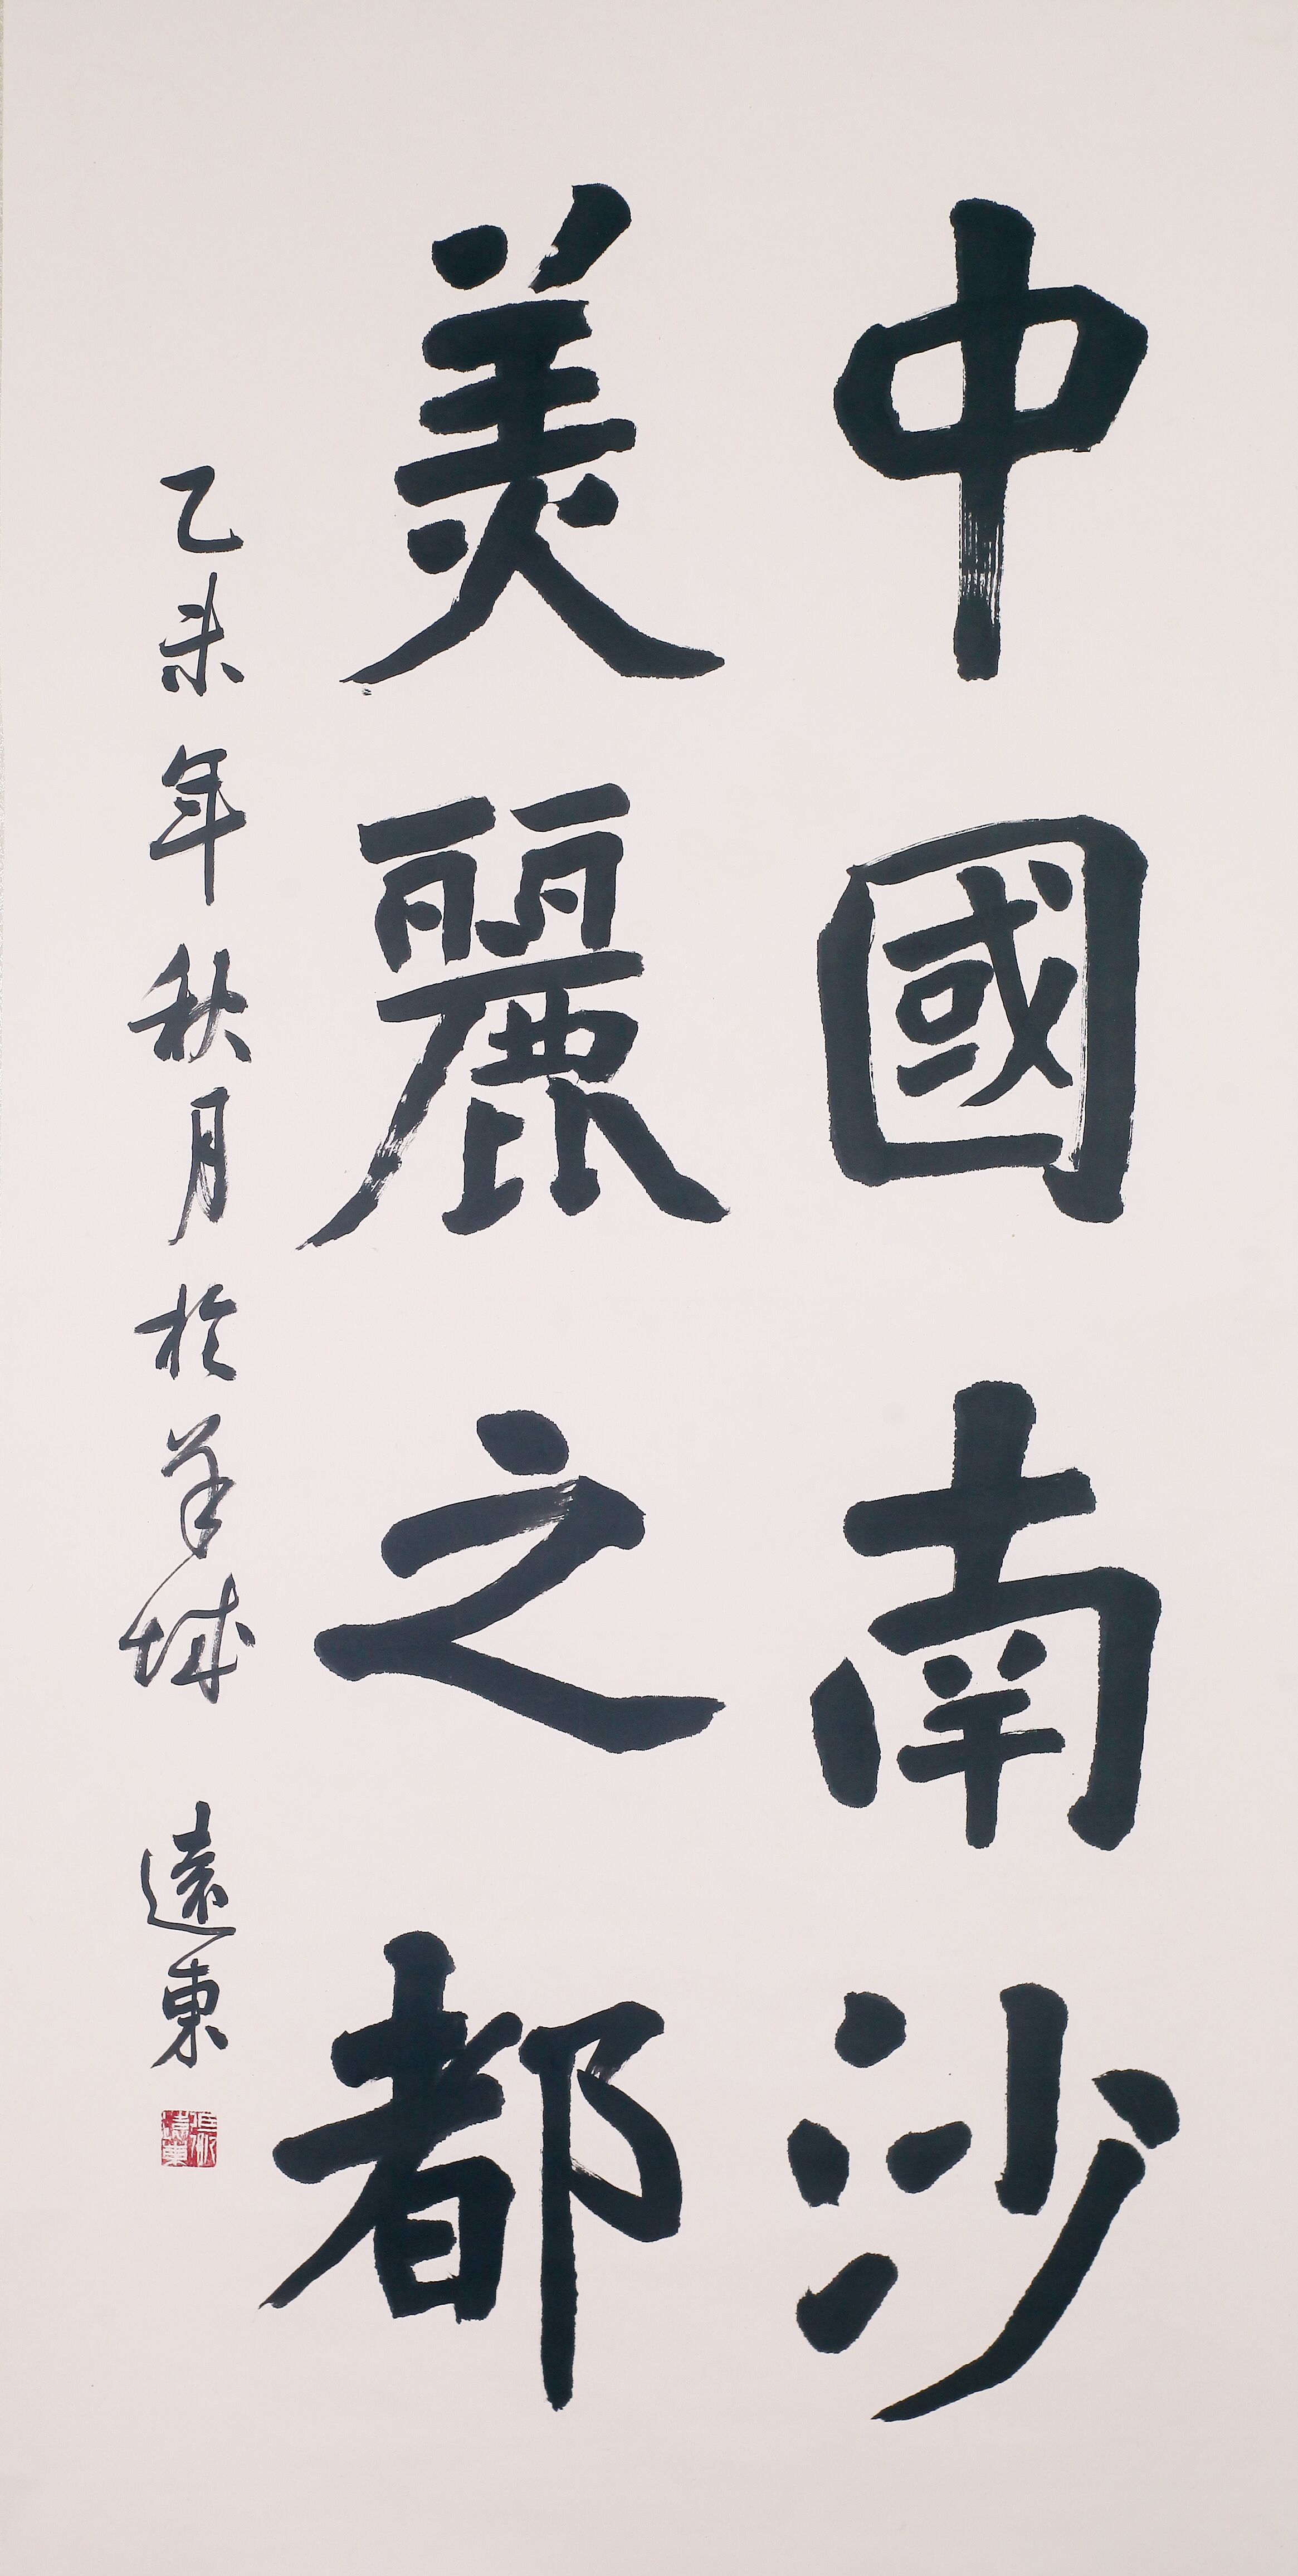 中國南沙
美麗之都
乙未年秋月於羊城 遠東